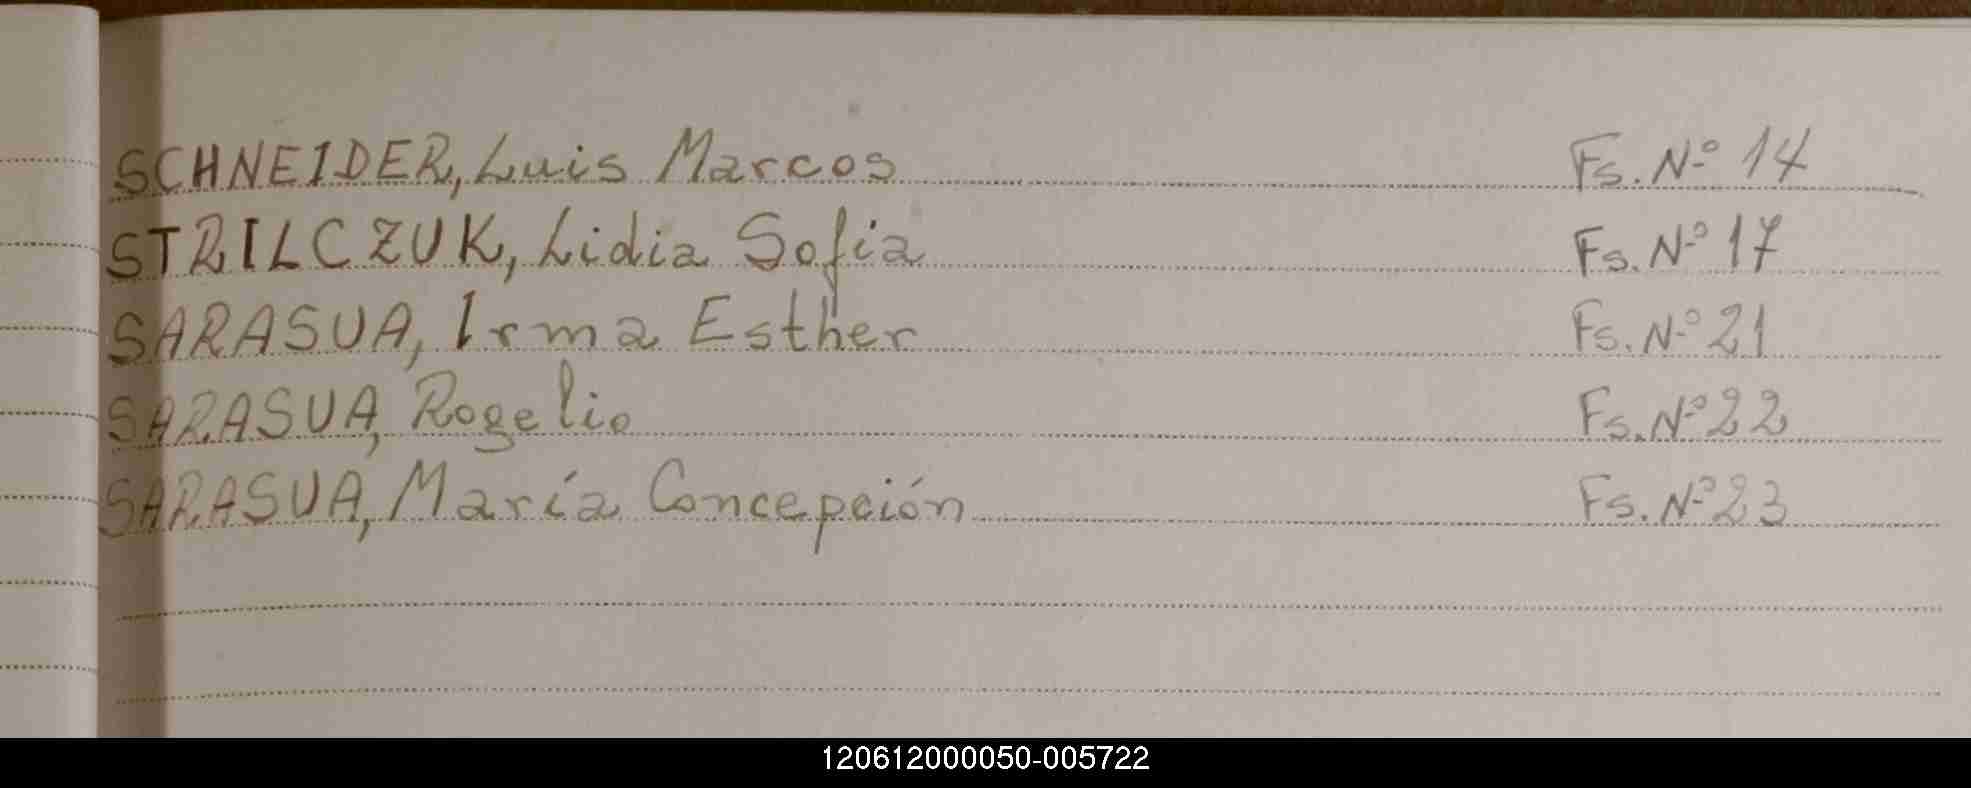 SCHNEIDER, Luis Marcos Fs. Nº 14
STRILCZUK, Lidia Sofia Fs. Nº 17
SARASUA, Irma Esther Fs. Nº 21
SARASUA, Rogelio Fs. Nº 22
SARASUA, María Concepción Fs. Nº 23
120612000050-005722